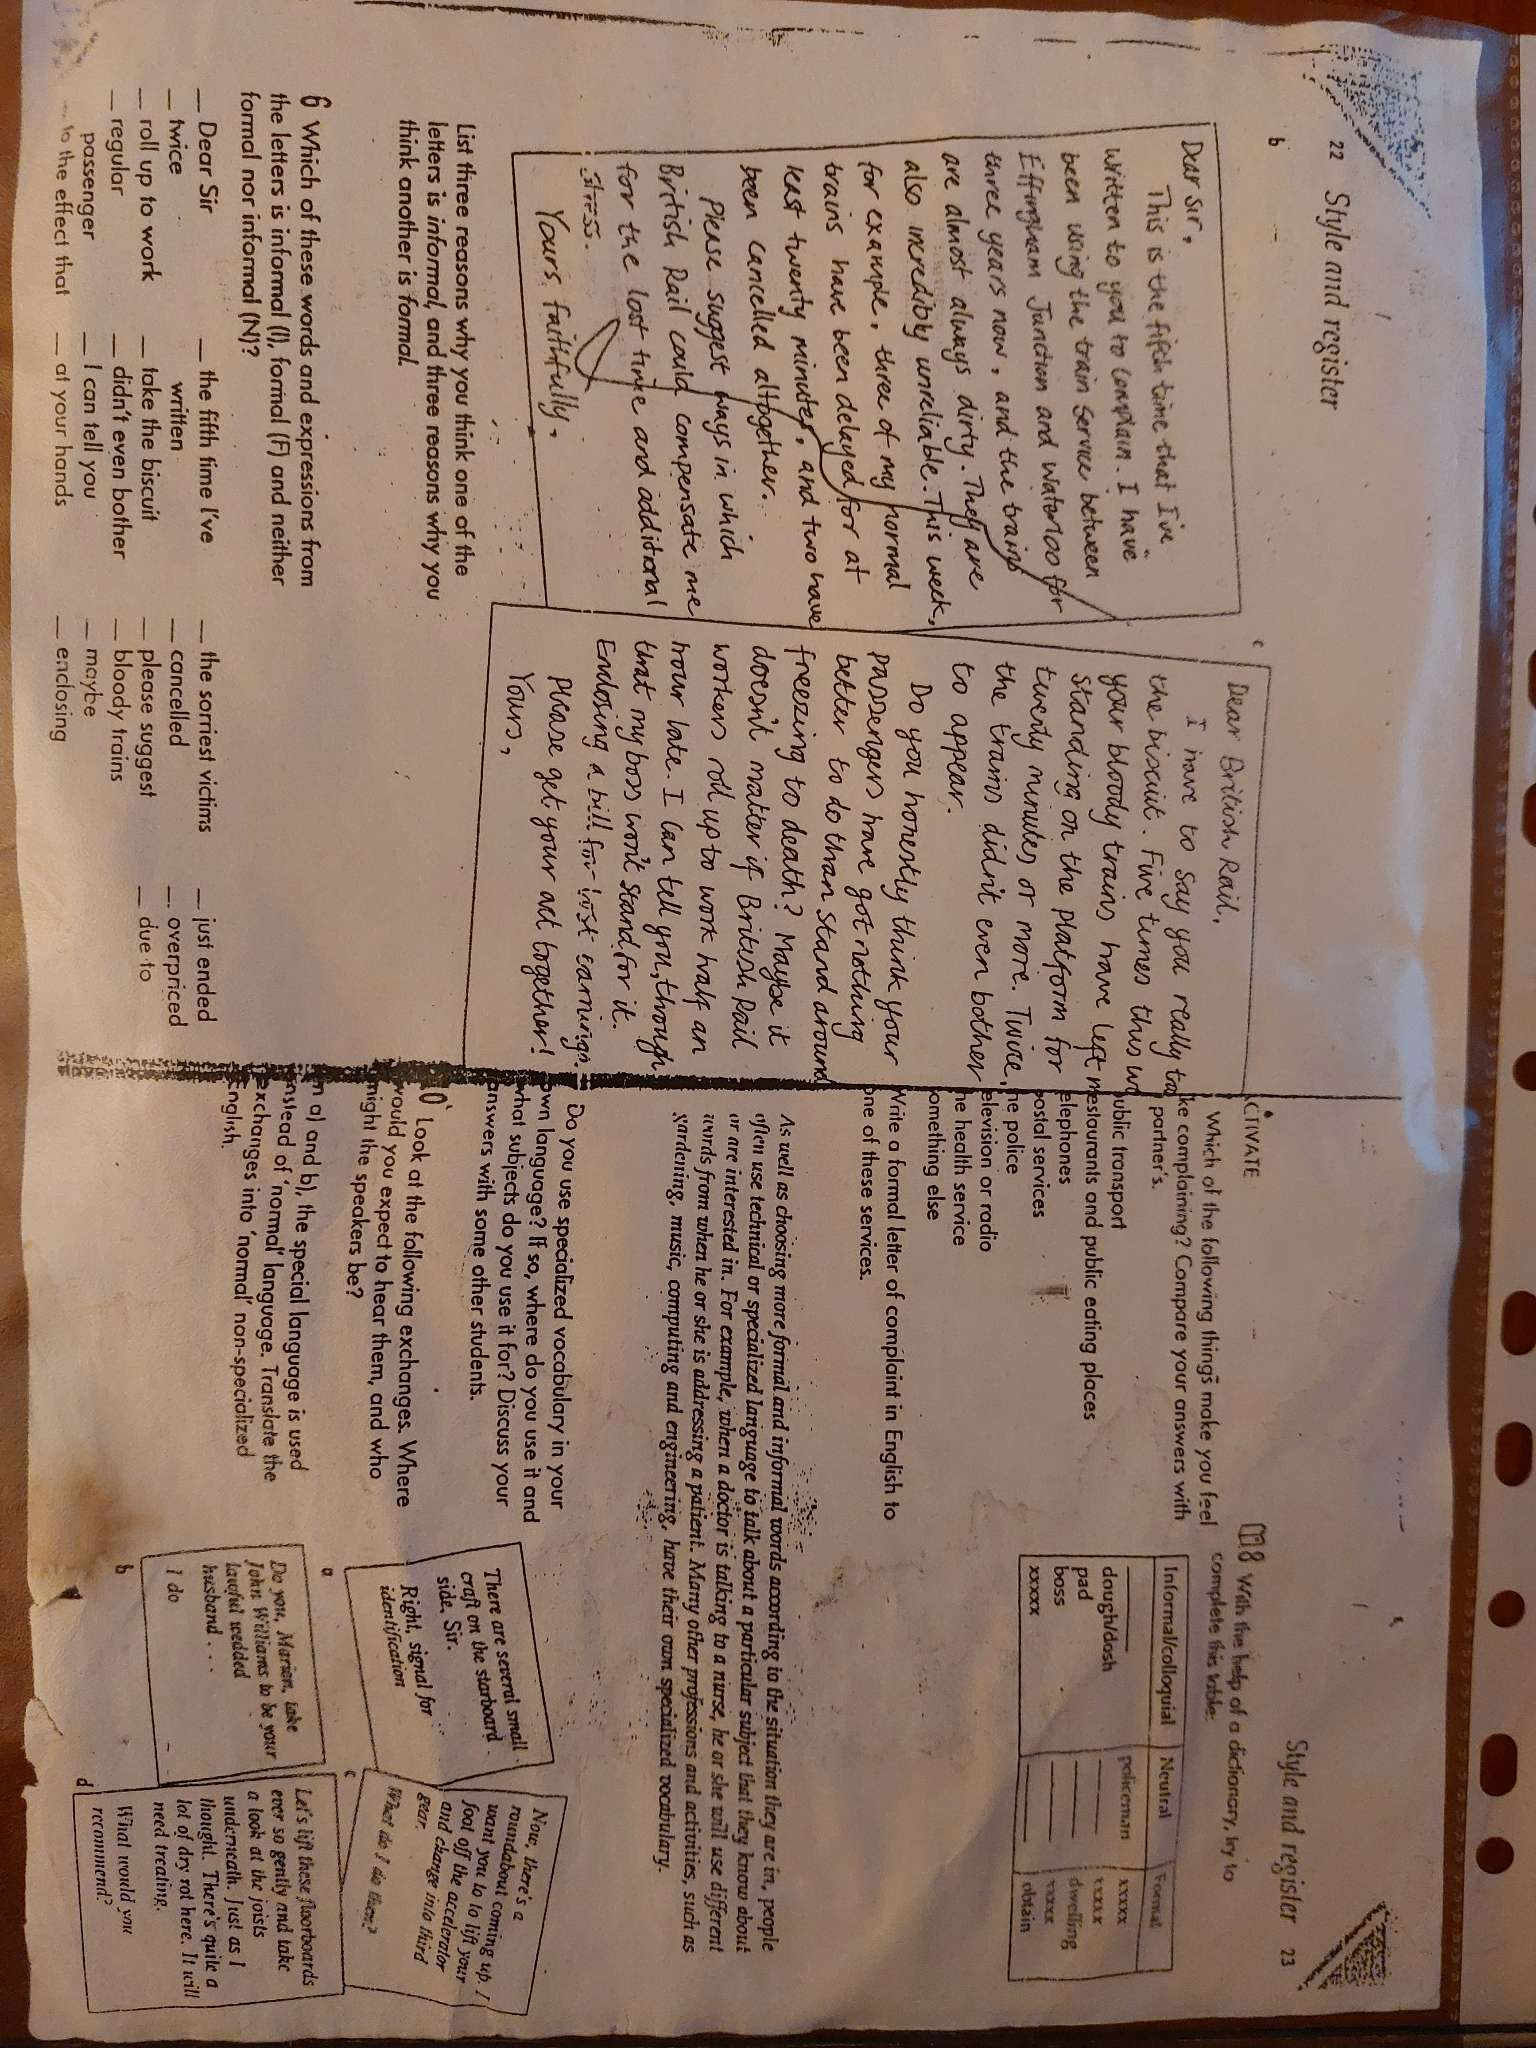 22 Style and register
b
Dear Sir,
This is the fifth time that I've
written to you to complain. I have
been using the train service between
Effingham Junction and Waterloo for
three years now, and the trains
are almost always dirty. They are
also incredibly unreliable. This week,
for example, three of my normal
trains have been delayed for at
least twenty minutes, and two have
been cancelled altogether.
Please suggest ways in which
British Rail could compensate me
for the lost time and additional
stress.
Yours faithfully,
c
Dear British Rail,
I have to say you really
the biscuit. Five times this
your bloody trains have left
standing on the platform for
twenty minutes or more. Twice,
the trains didn't even bother
to appear.
Do you honestly think your
passengers have got nothing
better to do than stand around
freezing to death? Maybe it
doesn't matter if British Rail
workers roll up to work half an
hour late. I can tell you, though
that my boss won't stand for it.
Enclosing a bill for lost earnings.
Please get your act together!
Yours,
List three reasons why you think one of the
letters is informal, and three reasons why you
think another is formal.
6 Which of these words and expressions from
the letters is informal (I), formal (F) and neither
formal nor informal (N)?
__ Dear Sir
__ twice
__ roll up to work
__ regular
passenger
__ to the effect that
__ the fifth time I've
written
__ take the biscuit
__ didn't even bother
__ I can tell you
__ at your hands
__ the sorriest victims
__ cancelled
__ please suggest
__ bloody trains
__ maybe
__ enclosing
__ just ended
__ overpriced
__ due to
Style and register 23
CTIVATE
Which of the following things make you feel
ke complaining? Compare your answers with
partner's.
ublic transport
estaurants and public eating places
elephones
ostal services
he police
elevision or radio
he health service
omething else
Write a formal letter of complaint in English to
one of these services.
8 With the help of a dictionary, try to
complete this table:
Informal/colloquial Neutral Formal
______ policeman xxxxx
dough/dosh ______ xxxxx
pad ______ dwelling
boss ______ xxxxx
xxxxx ______ obtain
As well as choosing more formal and informal words according to the situation they are in, people
often use technical or specialized language to talk about a particular subject that they know about
or are interested in. For example, when a doctor is talking to a nurse, he or she will use different
words from when he or she is addressing a patient. Many other professions and activities, such as
gardening, music, computing and engineering, have their own specialized vocabulary.
Do you use specialized vocabulary in your
own language? If so, where do you use it and
what subjects do you use it for? Discuss your
answers with some other students.
0 Look at the following exchanges. Where
would you expect to hear them, and who
might the speakers be?
n a) and b), the special language is used
instead of 'normal' language. Translate the
exchanges into 'normal' non-specialized
English.
There are several small
craft on the starboard
side, Sir.
Right, signal for
identification
a
Do you, Marion, take
John Williams to be your
lawful wedded
husband . . .
I do
b
Now, there's a
roundabout coming up. I
want you to to lift your
foot off the accelerator
and change into third
gear.
What do I do then?
c
Let's lift these floorboards
ever so gently and take
a look at the joists
underneath. Just as I
thought. There's quite a
lot of dry rot here. It will
need treating.
What would you
recommend?
d